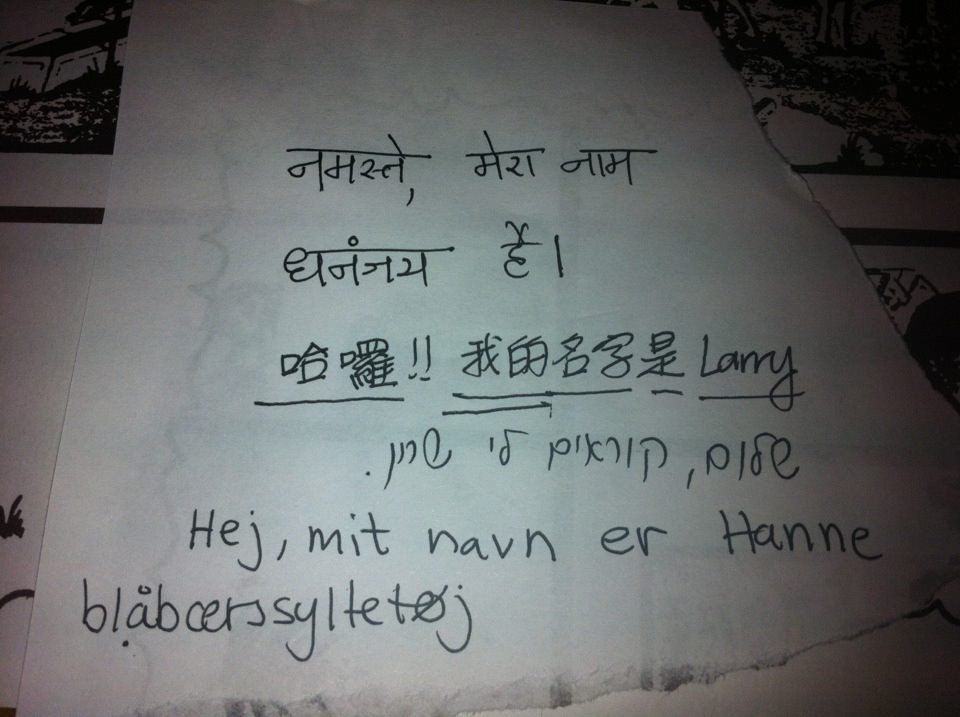 नमस्ते, मेरा नाम
धनंजय है।
哈囉!! 我的名字是 Larry
שלום, קוראים לי שרון.
Hej, mit navn er Hanne
blåbærssyltetøj